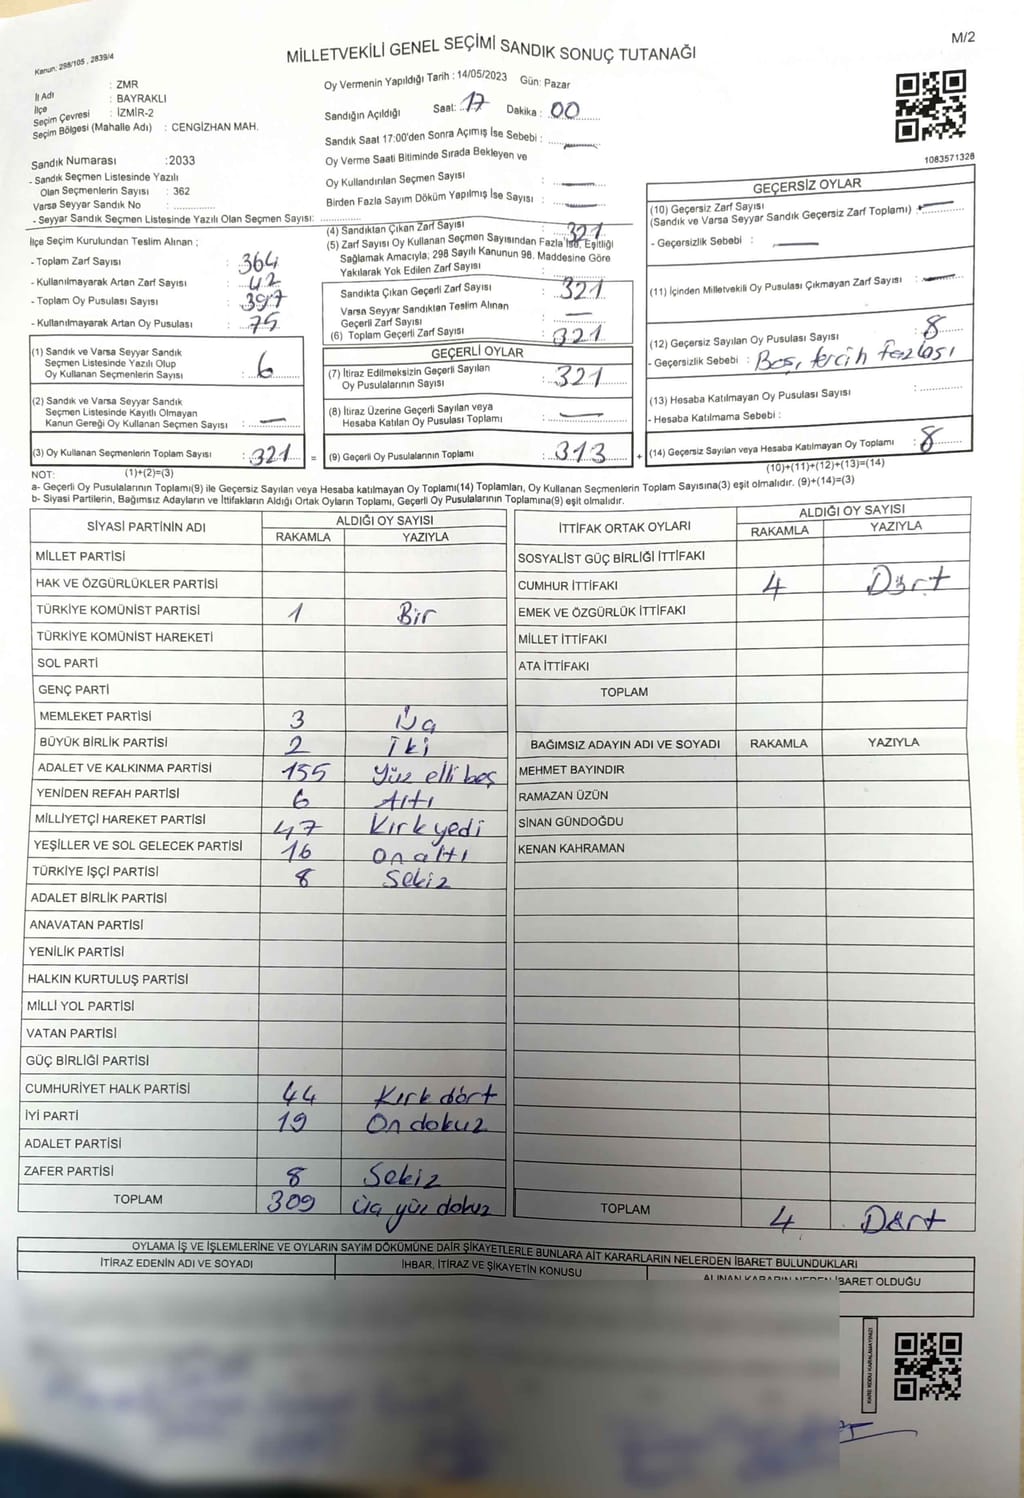 M/2
Kanun: 298/105 , 2839/4
MİLLETVEKİLİ GENEL SEÇİMİ SANDIK SONUÇ TUTANAĞI
İl Adı : ZMR
İlçe : BAYRAKLI
Seçim Çevresi : İZMİR-2
Seçim Bölgesi (Mahalle Adı) : CENGİZHAN MAH.
Sandık Numarası :2033
- Sandık Seçmen Listesinde Yazılı
Olan Seçmenlerin Sayısı : 362
Varsa Seyyar Sandık No :
- Seyyar Sandık Seçmen Listesinde Yazılı Olan Seçmen Sayısı:
Oy Vermenin Yapıldığı Tarih : 14/05/2023 Gün: Pazar
Sandığın Açıldığı Saat: 17 Dakika : 00
Sandık Saat 17:00'den Sonra Açımış İse Sebebi : —
Oy Verme Saati Bitiminde Sırada Bekleyen ve
Oy Kullandırılan Seçmen Sayısı : —
Birden Fazla Sayım Döküm Yapılmış İse Sayısı : —
1083571328
İlçe Seçim Kurulundan Teslim Alınan ;
- Toplam Zarf Sayısı : 364
- Kullanılmayarak Artan Zarf Sayısı : 42
- Toplam Oy Pusulası Sayısı : 397
- Kullanılmayarak Artan Oy Pusulası : 75
(1) Sandık ve Varsa Seyyar Sandık
Seçmen Listesinde Yazılı Olup
Oy Kullanan Seçmenlerin Sayısı : 6
(2) Sandık ve Varsa Seyyar Sandık
Seçmen Listesinde Kayıtlı Olmayan
Kanun Gereği Oy Kullanan Seçmen Sayısı : —
(3) Oy Kullanan Seçmenlerin Toplam Sayısı : 321
(4) Sandıktan Çıkan Zarf Sayısı : 321
(5) Zarf Sayısı Oy Kullanan Seçmen Sayısından Fazla İse, Eşitliği
Sağlamak Amacıyla; 298 Sayılı Kanunun 98. Maddesine Göre
Yakılarak Yok Edilen Zarf Sayısı :
Sandıkta Çıkan Geçerli Zarf Sayısı : 321
Varsa Seyyar Sandıktan Teslim Alınan
Geçerli Zarf Sayısı : —
(6) Toplam Geçerli Zarf Sayısı : 321
GEÇERLİ OYLAR
(7) İtiraz Edilmeksizin Geçerli Sayılan
Oy Pusulalarının Sayısı : 321
(8) İtiraz Üzerine Geçerli Sayılan veya
Hesaba Katılan Oy Pusulası Toplamı : —
= (9) Geçerli Oy Pusulalarının Toplamı : 313
GEÇERSİZ OYLAR
(10) Geçersiz Zarf Sayısı
(Sandık ve Varsa Seyyar Sandık Geçersiz Zarf Toplamı) : —
- Geçersizlik Sebebi : —
(11) İçinden Milletvekili Oy Pusulası Çıkmayan Zarf Sayısı : —
(12) Geçersiz Sayılan Oy Pusulası Sayısı : 8
- Geçersizlik Sebebi : Boş, tercih fazlası
(13) Hesaba Katılmayan Oy Pusulası Sayısı :
- Hesaba Katılmama Sebebi :
+ (14) Geçersiz Sayılan veya Hesaba Katılmayan Oy Toplamı : 8
NOT: (1)+(2)=(3)
(10)+(11)+(12)+(13)=(14)
a- Geçerli Oy Pusulalarının Toplamı(9) ile Geçersiz Sayılan veya Hesaba katılmayan Oy Toplamı(14) Toplamları, Oy Kullanan Seçmenlerin Toplam Sayısına(3) eşit olmalıdır. (9)+(14)=(3)
b- Siyasi Partilerin, Bağımsız Adayların ve İttifakların Aldığı Ortak Oyların Toplamı, Geçerli Oy Pusulalarının Toplamına(9) eşit olmalıdır.
SİYASİ PARTİNİN ADI ALDIĞI OY SAYISI
RAKAMLA YAZIYLA
MİLLET PARTİSİ
HAK VE ÖZGÜRLÜKLER PARTİSİ
TÜRKİYE KOMÜNİST PARTİSİ 1 Bir
TÜRKİYE KOMÜNİST HAREKETİ
SOL PARTİ
GENÇ PARTİ
MEMLEKET PARTİSİ 3 Üç
BÜYÜK BİRLİK PARTİSİ 2 İki
ADALET VE KALKINMA PARTİSİ 155 Yüz elli beş
YENİDEN REFAH PARTİSİ 6 Altı
MİLLİYETÇİ HAREKET PARTİSİ 47 Kırk yedi
YEŞİLLER VE SOL GELECEK PARTİSİ 16 on altı
TÜRKİYE İŞÇİ PARTİSİ 8 Sekiz
ADALET BİRLİK PARTİSİ
ANAVATAN PARTİSİ
YENİLİK PARTİSİ
HALKIN KURTULUŞ PARTİSİ
MİLLİ YOL PARTİSİ
VATAN PARTİSİ
GÜÇ BİRLİĞİ PARTİSİ
CUMHURİYET HALK PARTİSİ 44 Kırk dört
İYİ PARTİ 19 On dokuz
ADALET PARTİSİ
ZAFER PARTİSİ 8 Sekiz
TOPLAM 309 Üç yüz dokuz
İTTİFAK ORTAK OYLARI ALDIĞI OY SAYISI
RAKAMLA YAZIYLA
SOSYALİST GÜÇ BİRLİĞİ İTTİFAKI
CUMHUR İTTİFAKI 4 Dört
EMEK VE ÖZGÜRLÜK İTTİFAKI
MİLLET İTTİFAKI
ATA İTTİFAKI
TOPLAM
BAĞIMSIZ ADAYIN ADI VE SOYADI RAKAMLA YAZIYLA
MEHMET BAYINDIR
RAMAZAN ÜZÜN
SİNAN GÜNDOĞDU
KENAN KAHRAMAN
TOPLAM 4 Dört
OYLAMA İŞ VE İŞLEMLERİNE VE OYLARIN SAYIM DÖKÜMÜNE DAİR ŞİKAYETLERLE BUNLARA AİT KARARLARIN NELERDEN İBARET BULUNDUKLARI
İTİRAZ EDENİN ADI VE SOYADI İHBAR, İTİRAZ VE ŞİKAYETİN KONUSU ALINAN KARARIN NEDEN İBARET OLDUĞU